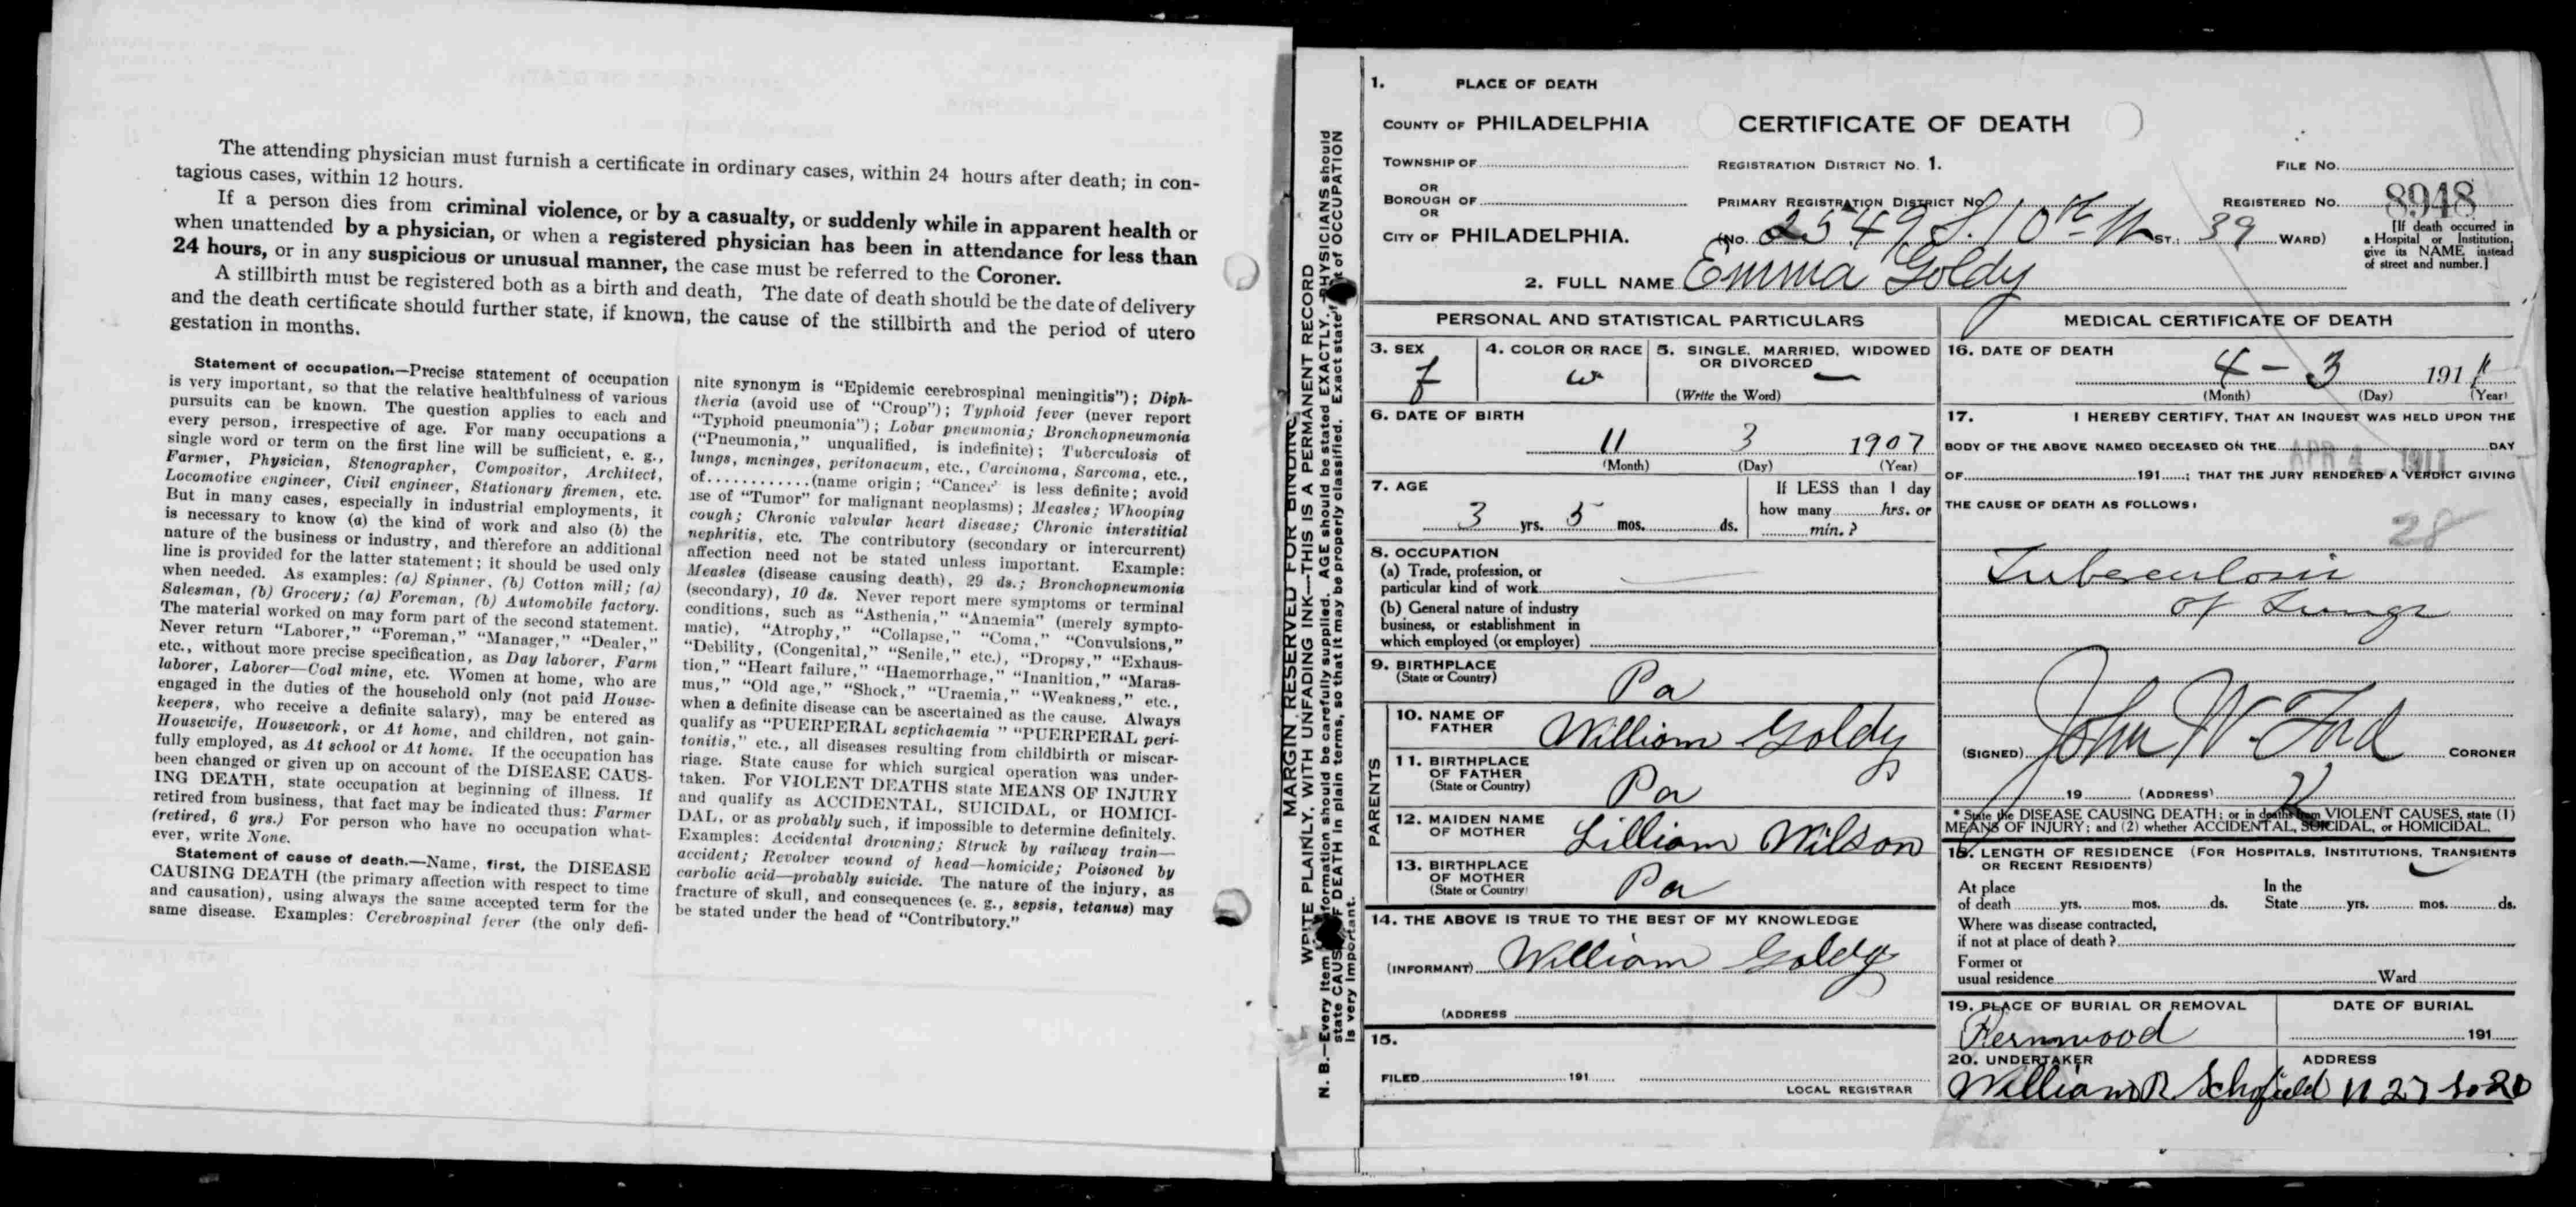 The attending physician must furnish a certificate in ordinary cases, within 24 hours after death; in con-
tagious cases, within 12 hours.
If a person dies from criminal violence, or by a casualty, or suddenly while in apparent health or
when unattended by a physician, or when a registered physician has been in attendance for less than
24 hours, or in any suspicious or unusual manner, the case must be referred to the Coroner.
A stillbirth must be registered both as a birth and death, The date of death should be the date of delivery
and the death certificate should further state, if known, the cause of the stillbirth and the period of utero
gestation in months.
Statement of occupation.—Precise statement of occupation
is very important, so that the relative healthfulness of various
pursuits can be known. The question applies to each and
every person, irrespective of age. For many occupations a
single word or term on the first line will be sufficient, e. g.,
Farmer, Physician, Stenographer, Compositor, Architect,
Locomotive engineer, Civil engineer, Stationary firemen, etc.
But in many cases, especially in industrial employments, it
is necessary to know (a) the kind of work and also (b) the
nature of the business or industry, and therefore an additional
line is provided for the latter statement; it should be used only
when needed. As examples: (a) Spinner, (b) Cotton mill; (a)
Salesman, (b) Grocery; (a) Foreman, (b) Automobile factory.
The material worked on may form part of the second statement.
Never return "Laborer," "Foreman," "Manager," "Dealer,"
etc., without more precise specification, as Day laborer, Farm
laborer, Laborer—Coal mine, etc. Women at home, who are
engaged in the duties of the household only (not paid House-
keepers, who receive a definite salary), may be entered as
Housewife, Housework, or At home, and children, not gain-
fully employed, as At school or At home. If the occupation has
been changed or given up on account of the DISEASE CAUS-
ING DEATH, state occupation at beginning of illness. If
retired from business, that fact may be indicated thus: Farmer
(retired, 6 yrs.) For person who have no occupation what-
ever, write None.
Statement of cause of death.—Name, first, the DISEASE
CAUSING DEATH (the primary affection with respect to time
and causation), using always the same accepted term for the
same disease. Examples: Cerebrospinal fever (the only defi-
nite synonym is "Epidemic cerebrospinal meningitis"); Diph-
theria (avoid use of "Croup"); Typhoid fever (never report
"Typhoid pneumonia"); Lobar pneumonia; Bronchopneumonia
("Pneumonia," unqualified, is indefinite); Tuberculosis of
lungs, meninges, peritonaeum, etc., Carcinoma, Sarcoma, etc.,
of............(name origin; "Cancer" is less definite; avoid
use of "Tumor" for malignant neoplasms); Measles; Whooping
cough; Chronic valvular heart disease; Chronic interstitial
nephritis, etc. The contributory (secondary or intercurrent)
affection need not be stated unless important. Example:
Measles (disease causing death), 29 ds.; Bronchopneumonia
(secondary), 10 ds. Never report mere symptoms or terminal
conditions, such as "Asthenia," "Anaemia" (merely sympto-
matic), "Atrophy," "Collapse," "Coma," "Convulsions,"
"Debility, (Congenital," "Senile," etc.), "Dropsy," "Exhaus-
tion," "Heart failure," "Haemorrhage," "Inanition," "Maras-
mus," "Old age," "Shock," "Uraemia," "Weakness," etc.,
when a definite disease can be ascertained as the cause. Always
qualify as "PUERPERAL septichaemia " "PUERPERAL peri-
tonitis," etc., all diseases resulting from childbirth or miscar-
riage. State cause for which surgical operation was under-
taken. For VIOLENT DEATHS state MEANS OF INJURY
and qualify as ACCIDENTAL, SUICIDAL, or HOMICI-
DAL, or as probably such, if impossible to determine definitely.
Examples: Accidental drowning; Struck by railway train—
accident; Revolver wound of head—homicide; Poisoned by
carbolic acid—probably suicide. The nature of the injury, as
fracture of skull, and consequences (e. g., sepsis, tetanus) may
be stated under the head of "Contributory."
MARGIN RESERVED FOR BINDING
WRITE PLAINLY, WITH UNFADING INK—THIS IS A PERMANENT RECORD
N. B.—Every item of information should be carefully supplied. AGE should be stated EXACTLY. PHYSICIANS should
state CAUSE OF DEATH in plain terms, so that it may be properly classified. Exact statement of OCCUPATION
is very important.
1. PLACE OF DEATH
COUNTY OF PHILADELPHIA
CERTIFICATE OF DEATH
TOWNSHIP OF
REGISTRATION DISTRICT NO. 1.
FILE NO.
OR
BOROUGH OF
PRIMARY REGISTRATION DISTRICT NO.
REGISTERED NO. 8948
OR
CITY OF PHILADELPHIA.
(NO. 2549 S. 10th St ST.; 39 WARD)
[If death occurred in
a Hospital or Institution,
give its NAME instead
of street and number.]
2. FULL NAME Emma Goldy
PERSONAL AND STATISTICAL PARTICULARS
3. SEX f
4. COLOR OR RACE w
5. SINGLE, MARRIED, WIDOWED
OR DIVORCED —
(Write the Word)
6. DATE OF BIRTH
11 3 1907
(Month) (Day) (Year)
7. AGE
3 yrs. 5 mos. ds.
If LESS than 1 day
how many hrs. or
min.?
8. OCCUPATION
(a) Trade, profession, or
particular kind of work
(b) General nature of industry
business, or establishment in
which employed (or employer)
9. BIRTHPLACE
(State or Country)
Pa
PARENTS
10. NAME OF
FATHER
William Goldy
11. BIRTHPLACE
OF FATHER
(State or Country)
Pa
12. MAIDEN NAME
OF MOTHER
Lilliam Wilson
13. BIRTHPLACE
OF MOTHER
(State or Country)
Pa
14. THE ABOVE IS TRUE TO THE BEST OF MY KNOWLEDGE
(INFORMANT) William Goldy
(ADDRESS
15.
FILED 191
LOCAL REGISTRAR
MEDICAL CERTIFICATE OF DEATH
16. DATE OF DEATH
4 - 3 1911
(Month) (Day) (Year)
17. I HEREBY CERTIFY, THAT AN INQUEST WAS HELD UPON THE
BODY OF THE ABOVE NAMED DECEASED ON THE APR 4 1911 DAY
OF 191 ; THAT THE JURY RENDERED A VERDICT GIVING
THE CAUSE OF DEATH AS FOLLOWS:
28
Tuberculosis
of Lungs
John W. Ford
(SIGNED) CORONER
19 (ADDRESS)
* State the DISEASE CAUSING DEATH; or in deaths from VIOLENT CAUSES, state (1)
MEANS OF INJURY; and (2) whether ACCIDENTAL, SUICIDAL, or HOMICIDAL.
18. LENGTH OF RESIDENCE (FOR HOSPITALS, INSTITUTIONS, TRANSIENTS
OR RECENT RESIDENTS)
At place In the
of death yrs. mos. ds. State yrs. mos. ds.
Where was disease contracted,
if not at place of death?
Former or
usual residence Ward
19. PLACE OF BURIAL OR REMOVAL
Fernwood
DATE OF BURIAL
191
20. UNDERTAKER
William R Schofield
ADDRESS
1127 So 20